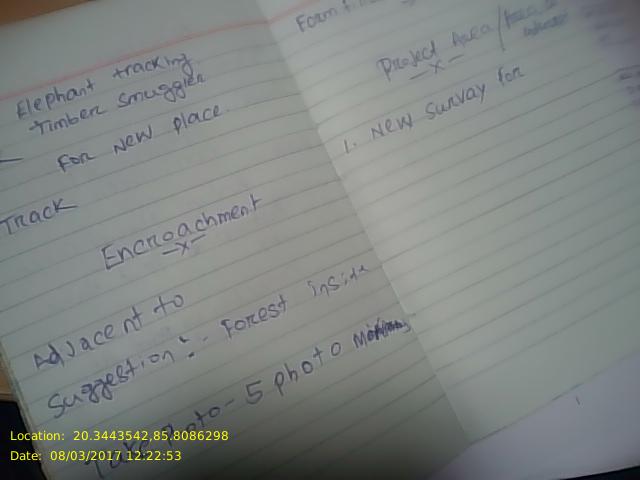 Elephant tracking
Timber smuggler
For New place
Track
Encroachment
-x-
Adjacent to
Suggestion:- Forest inside
Take Photo - 5 photo
Project Area /
-x-
1. New survay for
Location: 20.3443542,85.8086298
Date: 08/03/2017 12:22:53